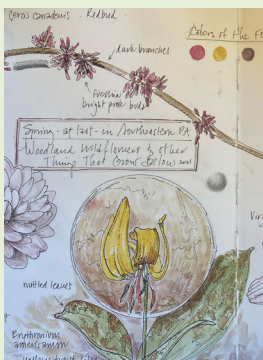 Cercis canadensis - Redbud
Colors of the Fo
dark branches
fuschia
bright pink buds
Spring - at last - in Southeastern PA
Woodland Wildflowers & other
Things That Grow Below
mottled leaves
Erythronium
americanum
yellow trout lily